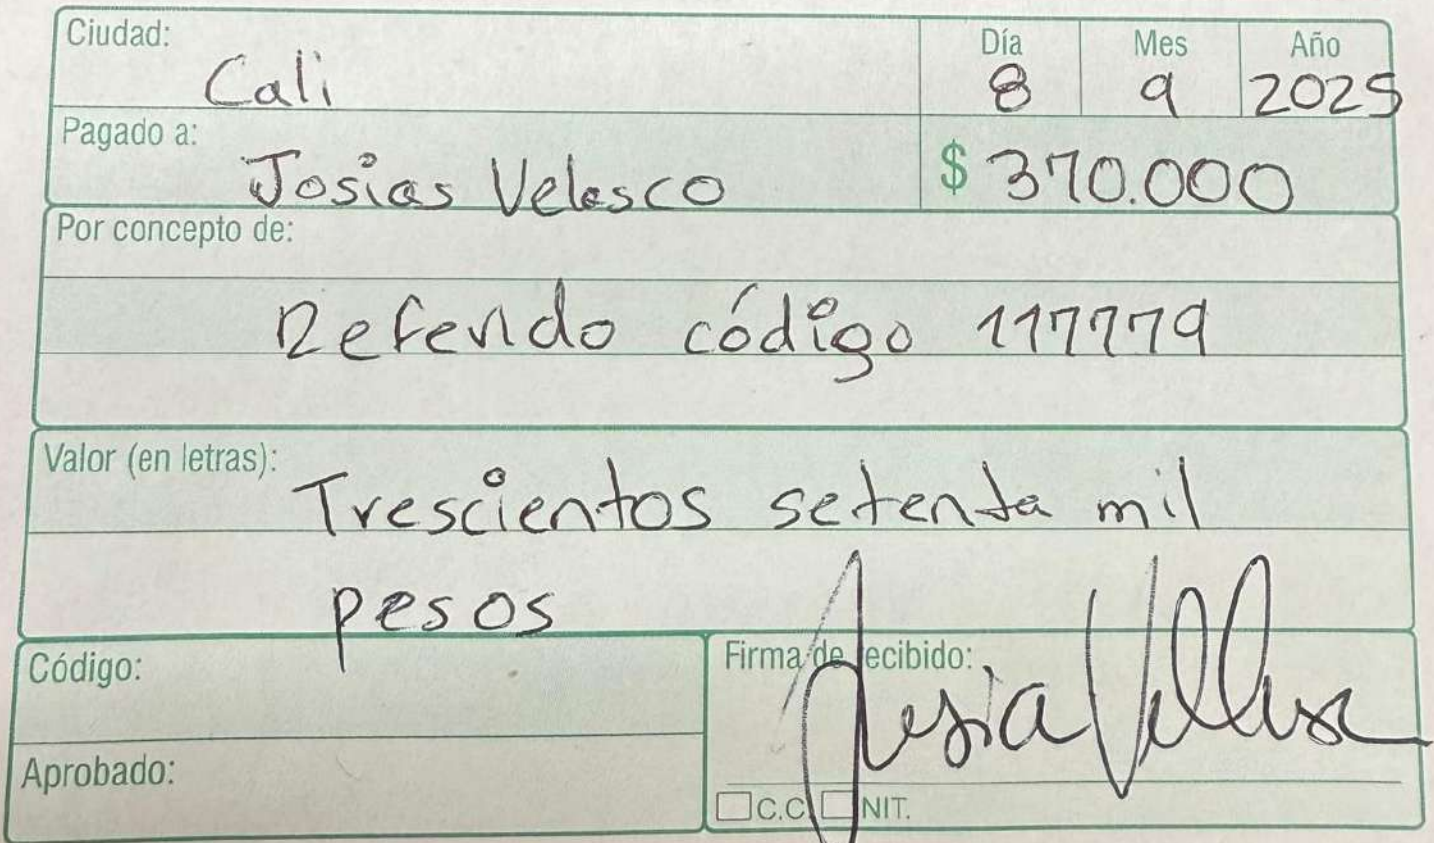 Ciudad: Día Mes Año
Cali 8 9 2025
Pagado a:
Josias Velasco $ 370.000
Por concepto de:
Referido código 117779
Valor (en letras):
Trescientos setenta mil
pesos
Código: Firma de recibido:
Aprobado:
C.C. NIT.